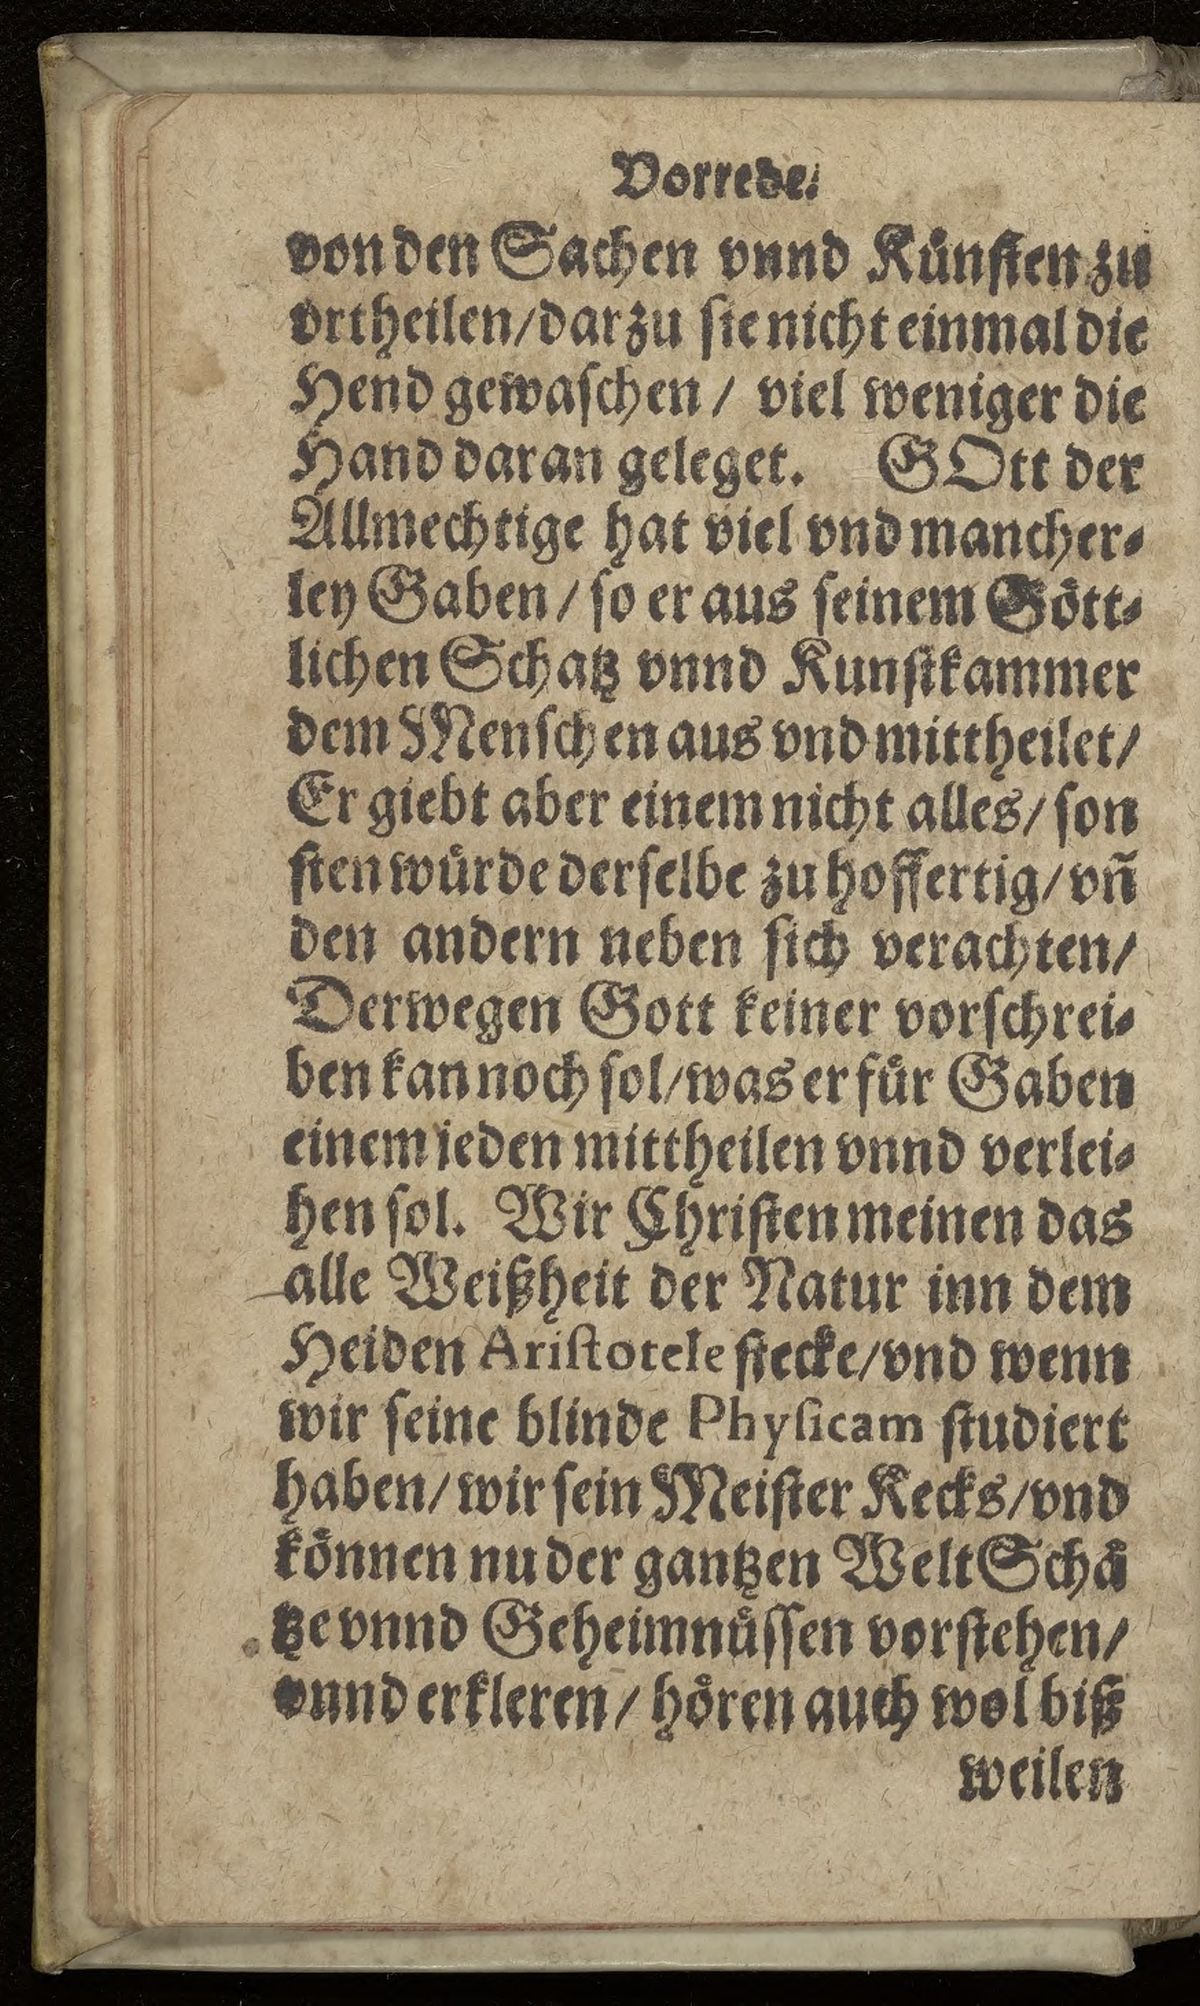 Vorrede.
von den Sachen vnnd Kuͤnſten zu
vrtheilen/ darzu ſie nicht einmal die
Hend gewaſchen/ viel weniger die
Hand daran geleget. GOtt der
Allmechtige hat viel vnd mancher⸗
ley Gaben/ ſo er aus ſeinem Goͤtt⸗
lichen Schatz vnnd Kunſtkammer
dem Menſchen aus vnd mittheilet/
Er giebt aber einem nicht alles/ ſon
ſten wuͤrde derſelbe zu hoffertig/ vñ
den andern neben ſich verachten/
Derwegen Gott keiner vorſchrei⸗
ben kan noch ſol/ was er fuͤr Gaben
einem jeden mittheilen vnnd verlei⸗
hen ſol. Wir Chriſten meinen das
alle Weißheit der Natur inn dem
Heiden Ariſtotele ſtecke/ vnd wenn
wir ſeine blinde Phyſicam ſtudiert
haben/ wir ſein Meiſter Kecks/ vnd
koͤnnen nu der gantzen Welt Schaͤ
tze vnnd Geheimnuͤſſen vorſtehen/
vnnd erkleren/ hoͤren auch wol biß
weilen